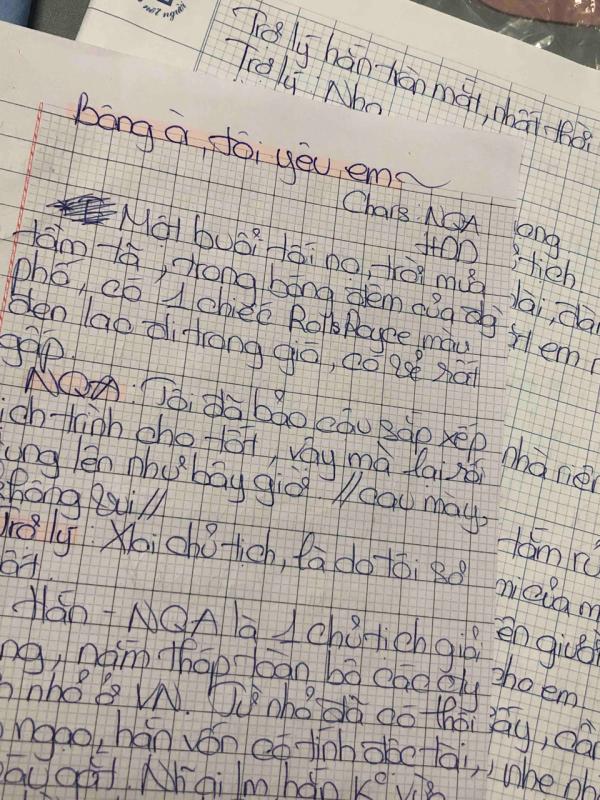 nét người
Trợ lý hắn tròn mắt, nhất thời
Trợ lý: Nhg
Băng à, tôi yêu em~
Chars: NQA
HDD
Một buổi tối nọ, trời mưa
tầm tã, trong bóng đêm của đg
phố, có 1 chiếc Rolls Royce màu
đen lao đi trong gió, có vẻ rất
gấp.
NQA: Tôi đã bảo cậu sắp xếp
ịch trình cho tốt, vậy mà lại rối
ung lên như bây giờ! //cau mày,
không vui//
Trợ lý: Xl chủ tịch, là do tôi sơ
Hắn - NQA là 1 chủ tịch giỏi
ng, nắm thóp toàn bộ các cty
nhỏ ở VN. Từ nhỏ đã có thói
ngạo, hắn vốn có tính độc tài,
ong
tịch
lai,
em
nhà riên
tắm rử
của m
ên giườ
cho em
ấy, cầ
nhẹ nh